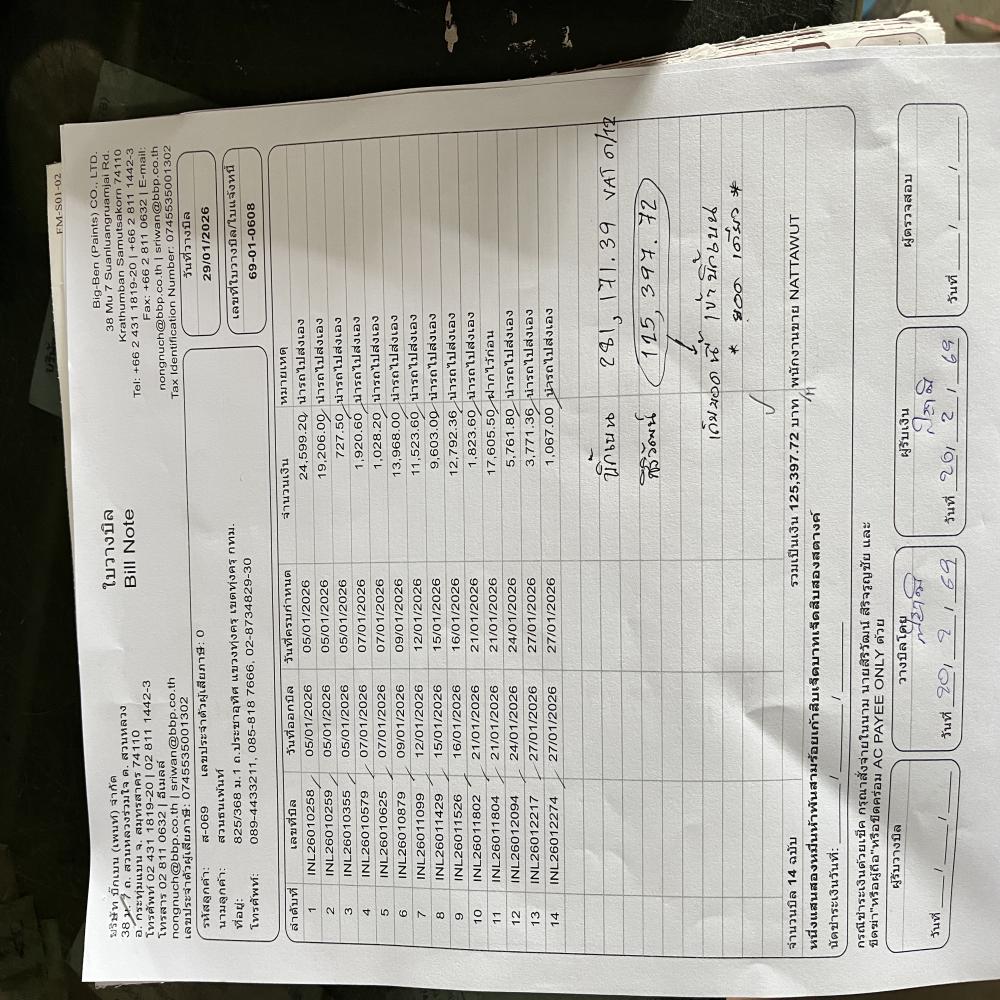 FM-S01-02
บริษัท บิ๊กเบน (เพนท์) จำกัด
38 ม. 7 ถ. สวนหลวงร่วมใจ ต. สวนหลวง
อ. กระทุ่มแบน จ. สมุทรสาคร 74110
โทรศัพท์ 02 431 1819-20 | 02 811 1442-3
โทรสาร 02 811 0632 | อีเมลล์
nongnuch@bbp.co.th | sriwan@bbp.co.th
เลขประจำตัวผู้เสียภาษี: 0745535001302
ใบวางบิล
Bill Note
Big-Ben (Paints) CO., LTD.
38 Mu 7 Suanluangruamjai Rd.
Krathumban Samutsakorn 74110
Tel: +66 2 431 1819-20 | +66 2 811 1442-3
Fax: +66 2 811 0632 | E-mail:
nongnuch@bbp.co.th | sriwan@bbp.co.th
Tax Identification Number: 0745535001302
รหัสลูกค้า: ส-069 เลขประจำตัวผู้เสียภาษี: 0
นามลูกค้า: สวนธนเพ้นท์
ที่อยู่: 825/368 ม.1 ถ.ประชาอุทิศ แขวงทุ่งครุ เขตทุ่งครุ กทม.
โทรศัพท์: 089-4433211, 085-818 7666, 02-8734829-30
วันที่วางบิล
29/01/2026
เลขที่ใบวางบิล/ใบแจ้งหนี้
69-01-0608
ลำดับที่ เลขที่บิล วันที่ออกบิล วันที่ครบกำหนด จำนวนเงิน หมายเหตุ
1 INL26010258 05/01/2026 05/01/2026 24,599.20 นำรถไปส่งเอง
2 INL26010259 05/01/2026 05/01/2026 19,206.00 นำรถไปส่งเอง
3 INL26010355 05/01/2026 05/01/2026 727.50 นำรถไปส่งเอง
4 INL26010579 07/01/2026 07/01/2026 1,920.60 นำรถไปส่งเอง
5 INL26010625 07/01/2026 07/01/2026 1,028.20 นำรถไปส่งเอง
6 INL26010879 09/01/2026 09/01/2026 13,968.00 นำรถไปส่งเอง
7 INL26011099 12/01/2026 12/01/2026 11,523.60 นำรถไปส่งเอง
8 INL26011429 15/01/2026 15/01/2026 9,603.00 นำรถไปส่งเอง
9 INL26011526 16/01/2026 16/01/2026 12,792.36 นำรถไปส่งเอง
10 INL26011802 21/01/2026 21/01/2026 1,823.60 นำรถไปส่งเอง
11 INL26011804 21/01/2026 21/01/2026 17,605.50 ฝากไว้ก่อน
12 INL26012094 24/01/2026 24/01/2026 5,761.80 นำรถไปส่งเอง
13 INL26012217 27/01/2026 27/01/2026 3,771.36 นำรถไปส่งเอง
14 INL26012274 27/01/2026 27/01/2026 1,067.00 นำรถไปส่งเอง
บิ๊กเบน 281,171.39 VAT
สิริวัฒน์ 125,397.72
เข้าบิ๊กเบน
* ยอดเดียว *
จำนวนบิล 14 ฉบับ รวมเป็นเงิน 125,397.72 บาท พนักงานขาย NATTAWUT
หนึ่งแสนสองหมื่นห้าพันสามร้อยเก้าสิบเจ็ดบาทเจ็ดสิบสองสตางค์
นัดชำระเงินวันที่: / /
กรณีชำระเงินด้วยเช็ค กรุณาสั่งจ่ายในนาม นายสิริวัฒน์ สิริจรูญชัย และ
ขีดฆ่า"หรือผู้ถือ"หรือขีดคร่อม AC PAYEE ONLY ด้วย
ผู้รับวางบิล
วันที่ / /
วางบิลโดย
วันที่ 20/ 2 / 69
ผู้รับเงิน
วันที่ 20/ 2 / 69
ผู้ตรวจสอบ
วันที่ / /